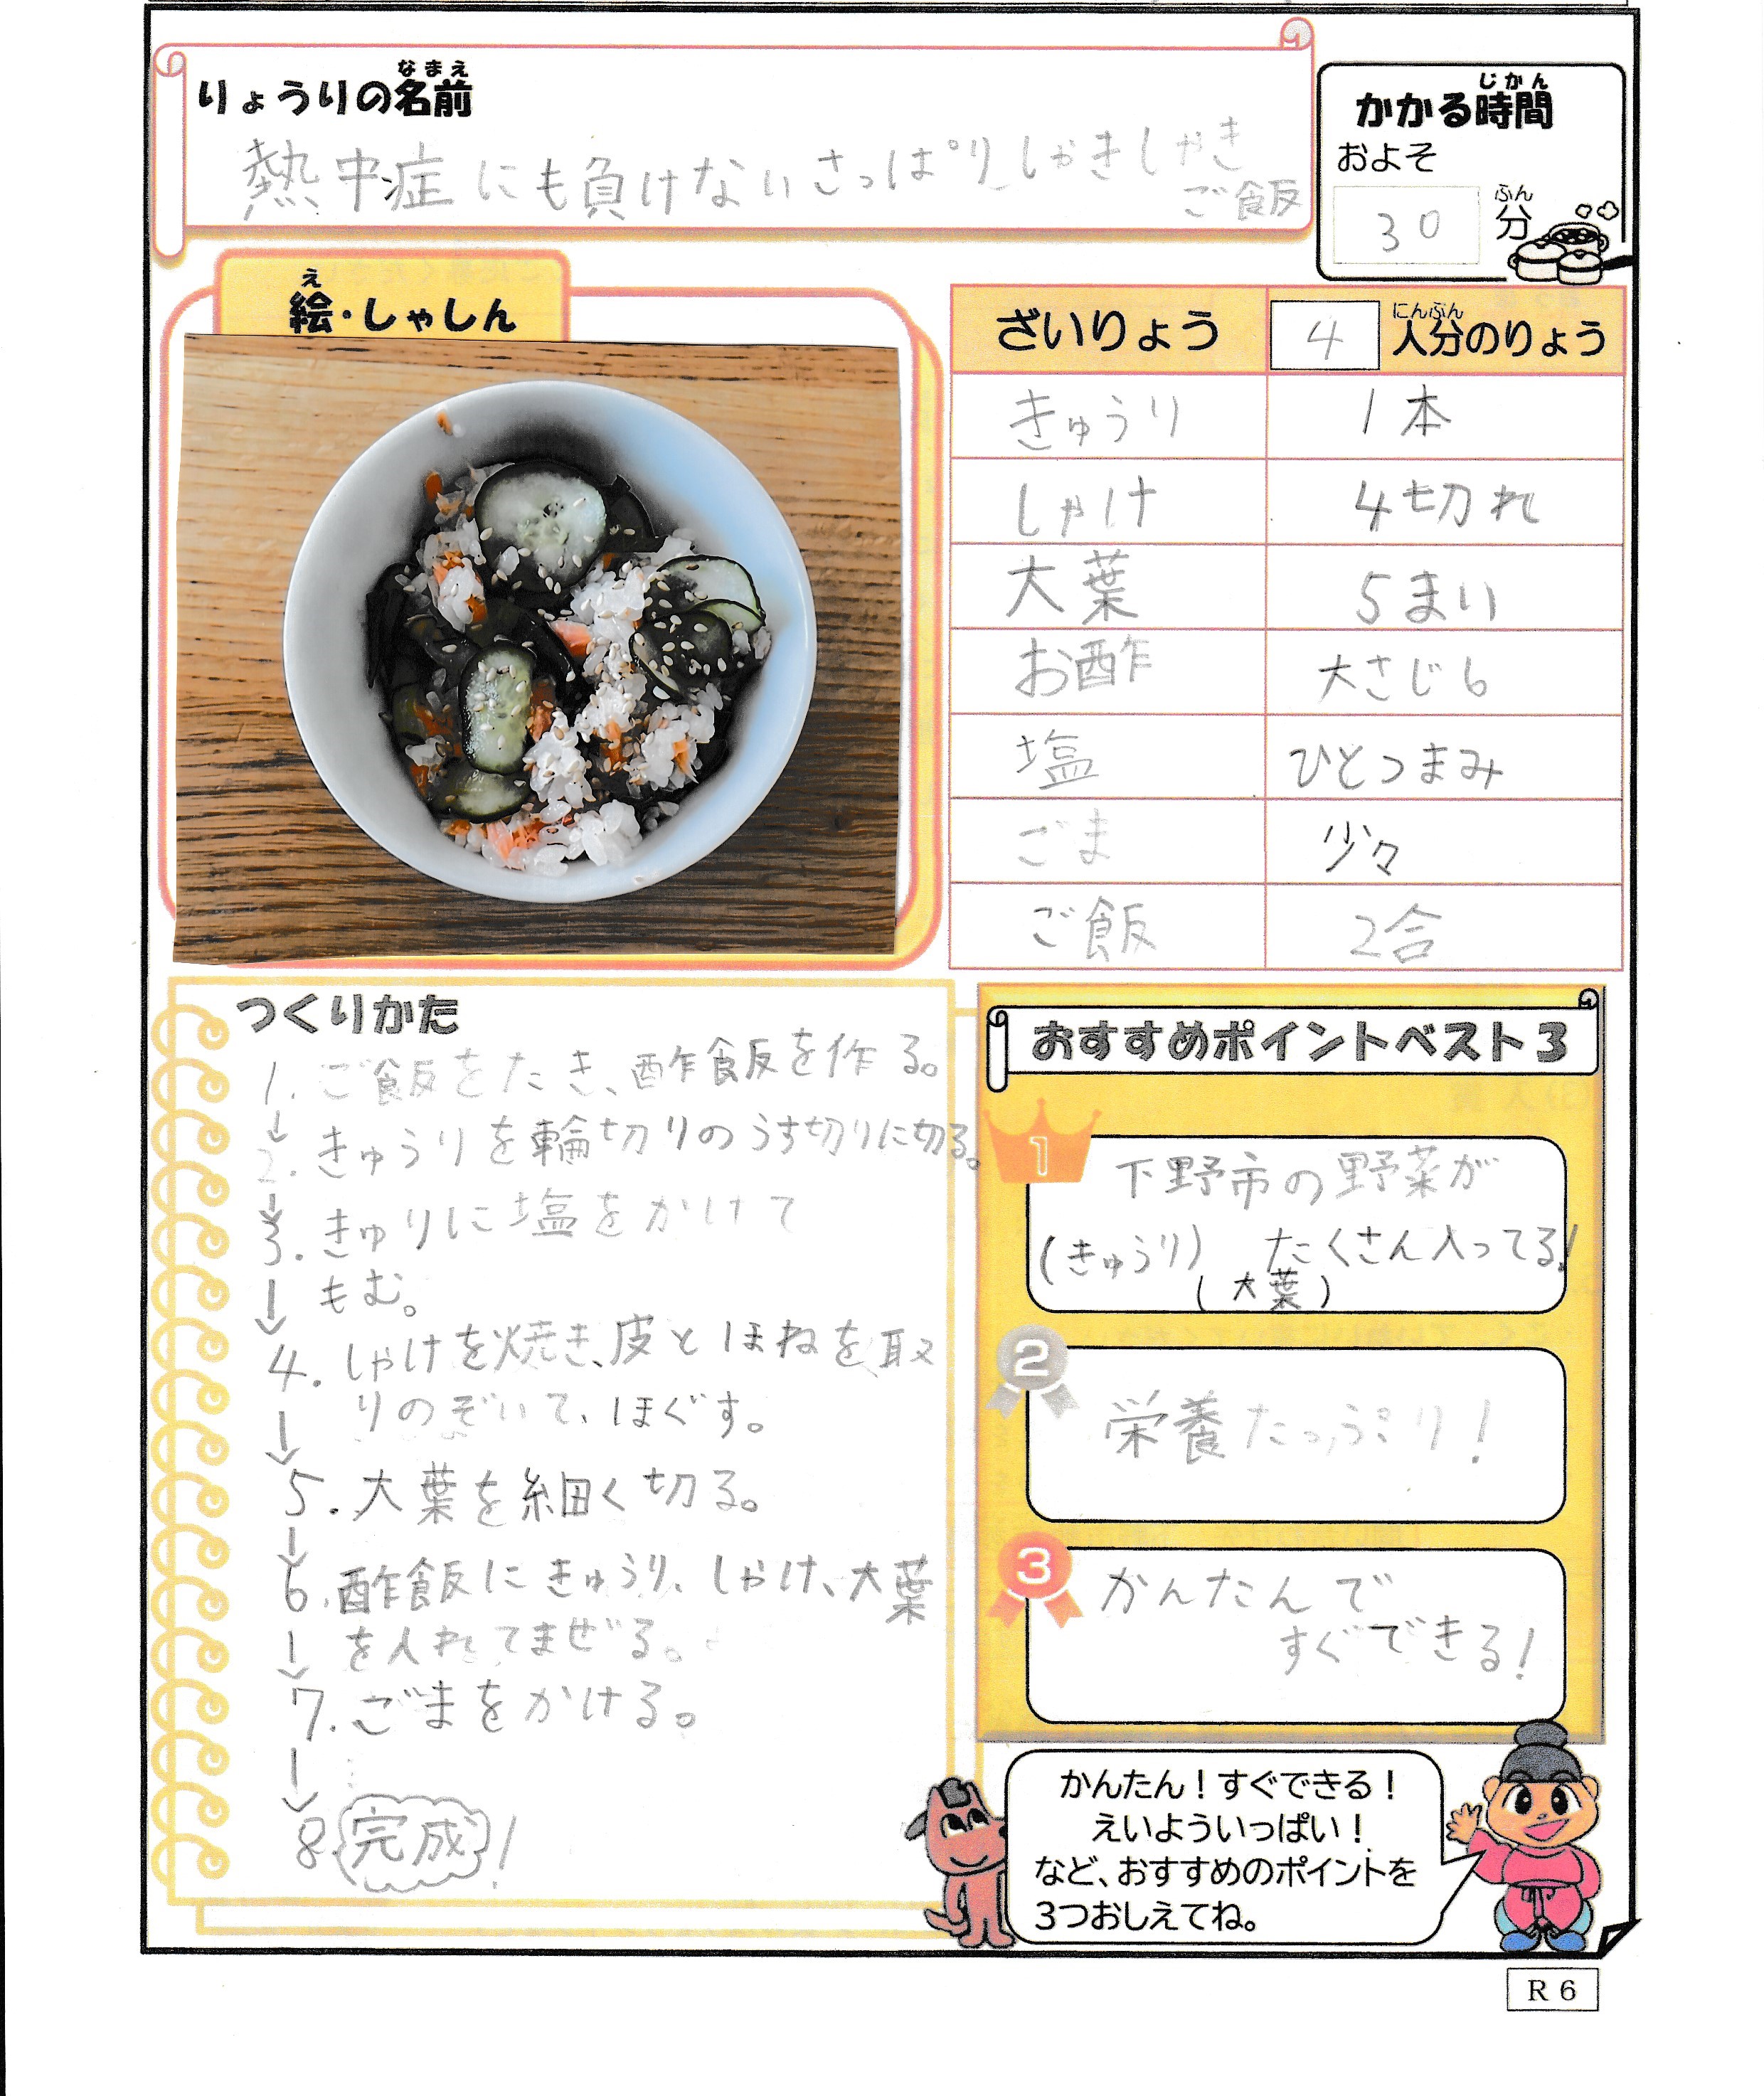 りょうりの名前
なまえ
熱中症にも負けないさっぱりしゃきしゃき
ご飯
かかる時間
じかん
およそ
30分
ふん
絵・しゃしん
え
ざいりょう 4人分のりょう
にんぶん
きゅうり 1本
しゃけ 4切れ
大葉 5まい
お酢 大さじ6
塩 ひとつまみ
ごま 少々
ご飯 2合
つくりかた
1. ご飯をたき、酢飯を作る。
↓
2. きゅうりを輪切りのうす切りに切る。
↓
3. きゅりに塩をかけて
もむ。
↓
4. しゃけを焼き、皮とほねを取
りのぞいて、ほぐす。
↓
5. 大葉を細く切る。
↓
6. 酢飯にきゅうり、しゃけ、大葉
を入れてまぜる。
↓
7. ごまをかける。
↓
8. 完成!
おすすめポイントベスト3
1
下野市の野菜が
(きゅうり) たくさん入ってる!
(大葉)
2
栄養たっぷり!
3
かんたんで
すぐできる!
かんたん!すぐできる!
えいよういっぱい!
など、おすすめのポイントを
3つおしえてね。
R6